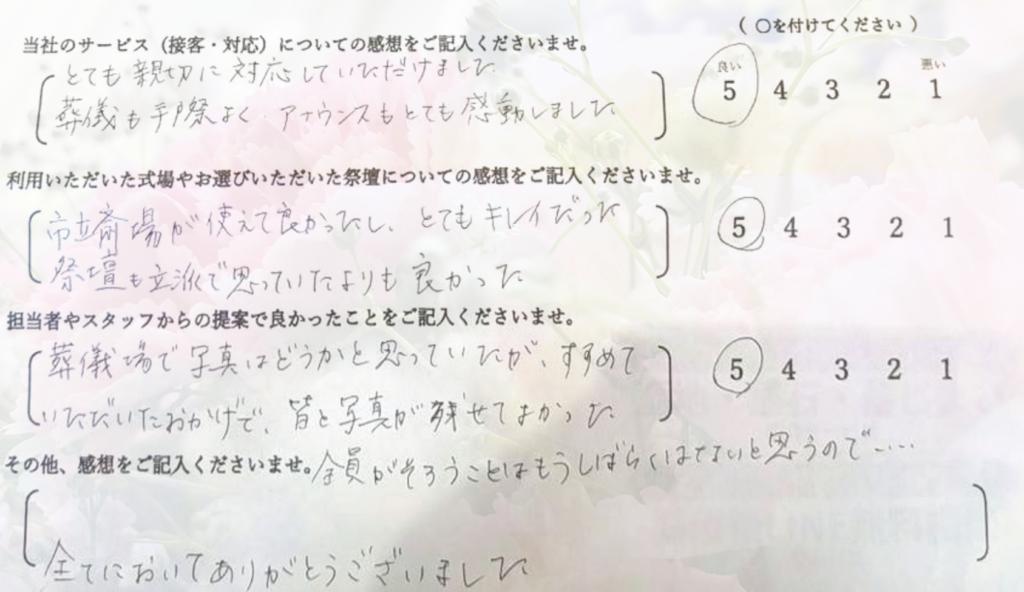 （ ○を付けてください ）
当社のサービス（接客・対応）についての感想をご記入くださいませ。
とても親切に対応していただけました
葬儀も手際よく、アナウンスもとても感動しました
良い 悪い
5 4 3 2 1
利用いただいた式場やお選びいただいた祭壇についての感想をご記入くださいませ。
市立斎場が使えて良かったし、とてもキレイだった
祭壇も立派で思っていたよりも良かった
5 4 3 2 1
担当者やスタッフからの提案で良かったことをご記入くださいませ。
葬儀場で写真はどうかと思っていたが、すすめて
いただいたおかげで、皆と写真が残せてよかった
5 4 3 2 1
全員がそろうことはもうしばらくはないと思うので……
その他、感想をご記入くださいませ。
全てにおいてありがとうございました